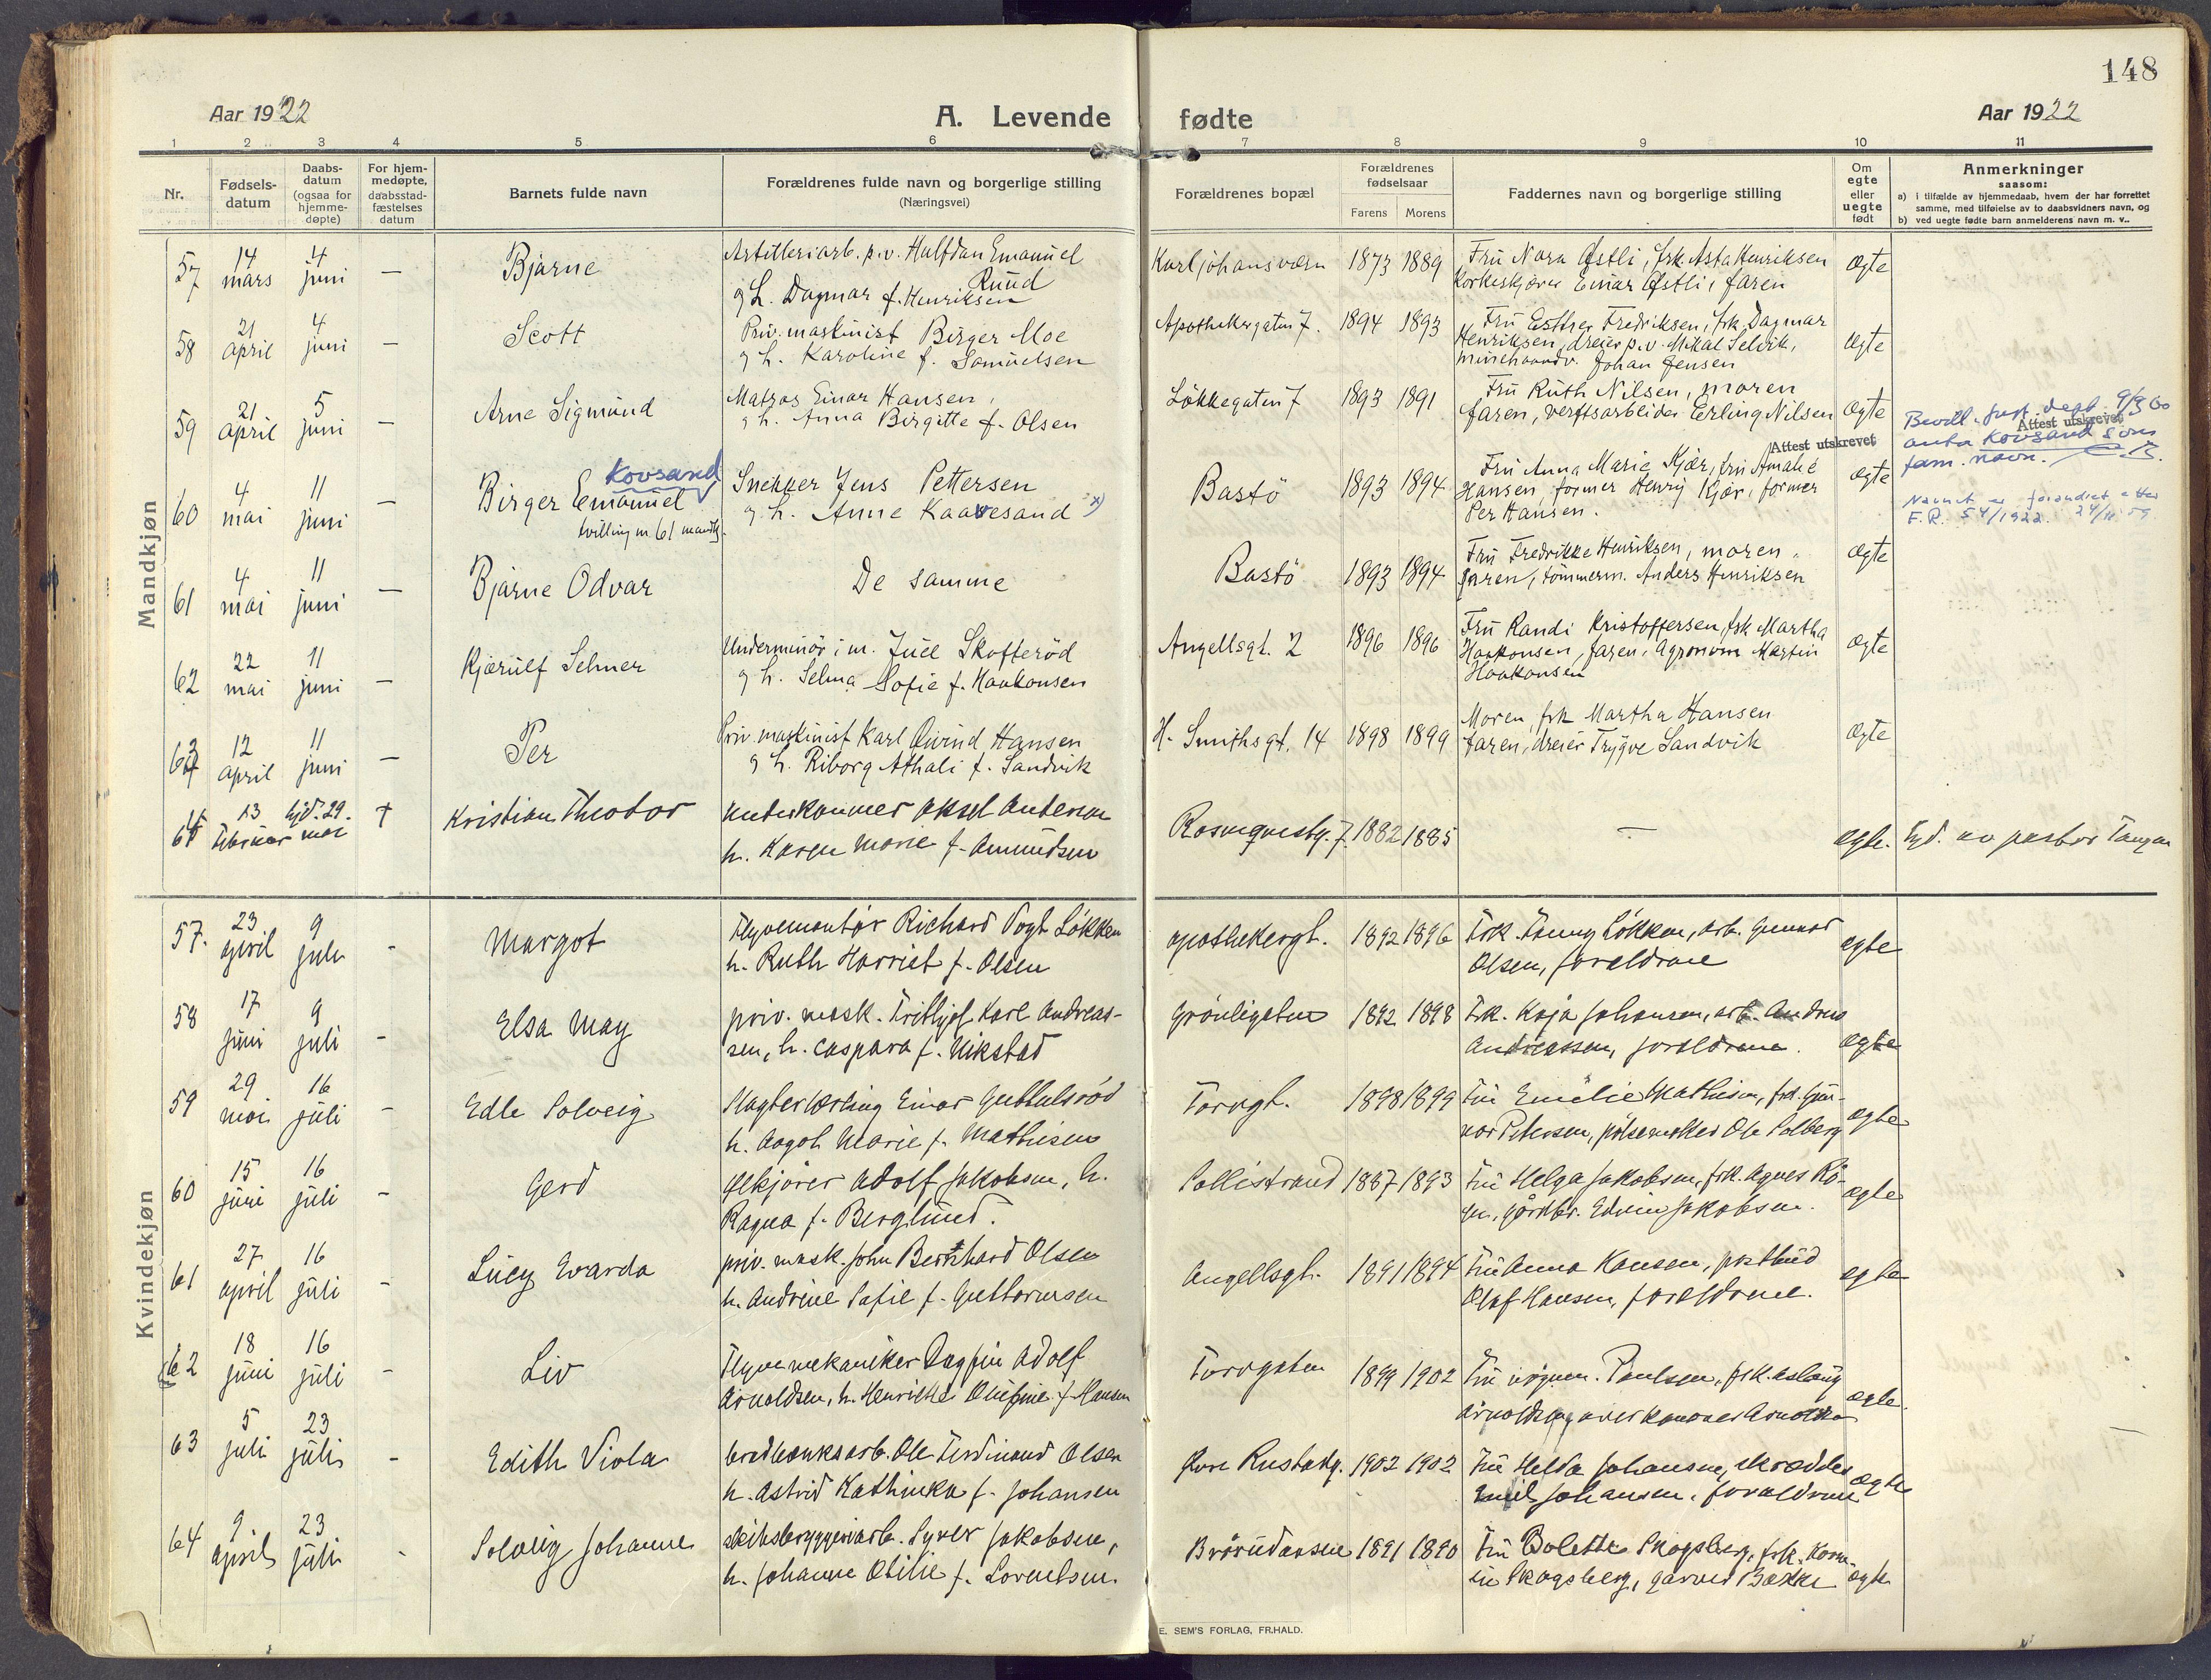 148
Aar 1922
A. Levende fødte
Aar 1922
1 2 3 4 5 6 7 8 9 10 11
Nr.
Fødsels-
datum
Daabs-
datum
(ogsaa for
hjemme-
døpte)
For hjem-
medøpte,
daabsstad-
fæstelses
datum
Barnets fulde navn
Forældrenes fulde navn og borgerlige stilling
(Næringsvei)
Forældrenes bopæl
Forældrenes
fødselsaar
Farens Morens
Faddernes navn og borgerlige stilling
Om
egte
eller
uegte
født
Anmerkninger
saasom:
a) i tilfælde av hjemmedaab, hvem der har forrettet
samme, med tilføielse av to daabsvidners navn, og
b) ved uegte fødte barn anmelderens navn m. v..
Mandkjøn
57 14 mars 4 juni — Bjarne
Artilleriarb. p.v. Halfdan Emanuel
Ruud
g h. Dagmar f. Henriksen
Karljohansværn 1873 1889
Fru Nora Østli, frk. Asta Henriksen
Korkeskjærer Einar Østli, faren
Ægte
58 21 april 4 juni — Scott
Priv. maskinist Birger Moe
g h. Karoline f. Samuelsen
Apothekergaten 7. 1894 1893
Fru Esther Fredriksen, frk. Dagmar
Henriksen, dreier p.v. Mikal Selvik,
minehaandv. Johan Jensen
Ægte
59 21 april 5 juni — Arne Sigmund
Matros Einar Hansen,
g h. Anna Birgitte f. Olsen
Løkkegaten 7 1893 1891
Fru Ruth Nilsen, moren
faren, verftsarbeider Erling Nilsen
Ægte
Attest utskrevet
60 4 mai 11 juni — Birger Emanuel Kovsand
tvilling m 61 mandkj.
Snekker Jens Pettersen
g h. Anne Kaavesand x)
Bastö 1893 1894
Fru Anna Marie Kjær, fru Amalie
Hansen, former Henry Kjær, former
Per Hansen.
Ægte
Bevill. just. dept. 9/3 60
Attest utskrevet
anta Kovsand som
fam. navn.
Navnet er forandret etter
F.R. 54/1922. 24/11 59
61 4 mai 11 juni — Bjarne Odvar
De samme
Bastö 1893 1894
Fru Fredrikke Henriksen, moren,
faren, tömmerm. Anders Henriksen
Ægte
62 22 mai 11 juni — Kjærulf Selmer
Underminör i m. Juel Skofteröd
g h. Selma Sofie f. Haakonsen
Angellsgt. 2 1896 1896
Fru Randi Kristoffersen, frk Martha
Haakonsen, faren, Agronom Martin
Haakonsen
Ægte
63 12 april 11 juni — Per
Priv. maskinist Karl Øivind Hansen
g h. Riborg Athali f. Sandvik
H. Smithsgt. 14 1898 1899
Moren, frk Martha Hansen
faren, dreier Trygve Sandvik
Ægte
64 13 februar hjd. 29. mai † Kristian Theodor
Underkanoner Aksel Andersen
h. Karen Marie f. Amundsen
Rosenqvistg. 7. 1882 1885
—
ægte. Hjd. av pastor Tangen
Kvindekjøn
57. 23 april 9 juli - Margot
Flyvemontør Richard Vogt Løkken
h. Ruth Harriet f. Olsen
Apothekergt. 1892 1896
Frk. Fanny Løkken, arb. Gunnar
Olsen, foreldrene
ægte
58 17 juni 9 juli - Elsa May
priv. mask. Frithjof Karl Andreas-
sen, h. Caspara f. Ukstad
Grönligaten 1892 1898
Frk. Kaja Johansen, arb. Andreas
Andreassen, foreldrene.
ægte
59 29 mai 16 juli - Edle Solveig
Slagterlærling Einar Guttulsröd
h. Aagot Marie f. Mathisen
Torvgt. 1898 1899
Fru Emelie Mathisen, frk. Gun-
vor Petersen, pölsemaker Ole Solberg
ægte
60 15 juni 16 juli - Gerd
Ølkjører Adolf Jakobsen, h.
Ragna f. Berglund.
Sollistrand 1887 1893
Fru Helga Jakobsen, frk. Agnes Rö-
en, gårdbr. Edvin Jakobsen.
ægte
61 27 april 16 juli - Lucy Evarda
priv. mask. John Bernhard Olsen
h. Andrine Sofie f. Guttormsen
Angellsgt. 1891 1894
Fru Anna Hansen, postbud
Olaf Hansen, foreldrene.
ægte
62 18 juni 16 juli - Liv
Flyvemekaniker Dagfin Adolf
Arnoldsen, h. Henrikke Olufine f. Hansen
Torvgaten 1899 1902
Fru Paulsen, frk. Aslaug
Arnoldsen, overkanoner Arnoldsen
ægte.
63 5 juli 23 juli - Edith Viola
bredbænkarb. Ole Ferdinand Olsen
h. Astrid Kathinka f. Johansen
Rustadg. 1902 1902
Fru Helda Johansen, skrædder
Emil Johansen, foreldrene
ægte
64 9. april 23 juli - Solveig Johanne
skibsbyggeriarb. Syver Jakobsen,
h. Johanne Otilie f. Lorentsen.
Brårudåsen 1891 1890
Fru Bolette Skogsberg, frk. Kom-
in Skogsberg, garver Bakke
ægte
E. SEM'S FORLAG, FR.HALD.